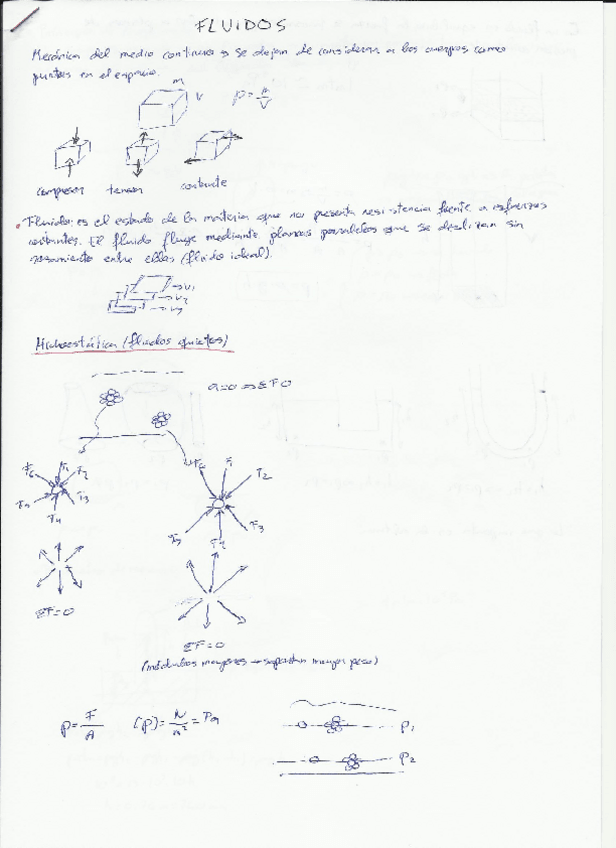 FLUIDOS
Mecánica del medio continuo → se dejan de considerar a los cuerpos como
puntos en el espacio.
m
V
ρ = m/V
compresión tensión cortante
• Fluido: es el estado de la materia que no presenta resistencia frente a esfuerzos
cortantes. El fluido fluye mediante planos paralelos que se deslizan sin
rozamiento entre ellos (fluido ideal).
→ V1
→ V2
→ V3
Hidroestática (fluidos quietos)
a=0 ⇒ ΣF=0
F6 F1 F2
F5 F3
F4
F6 F1 F2
F5 F3
ΣF=0
ΣF=0
(módulos mayores → soportan mayor peso)
P = F/A [P] = N/m² = Pa
P1
P2